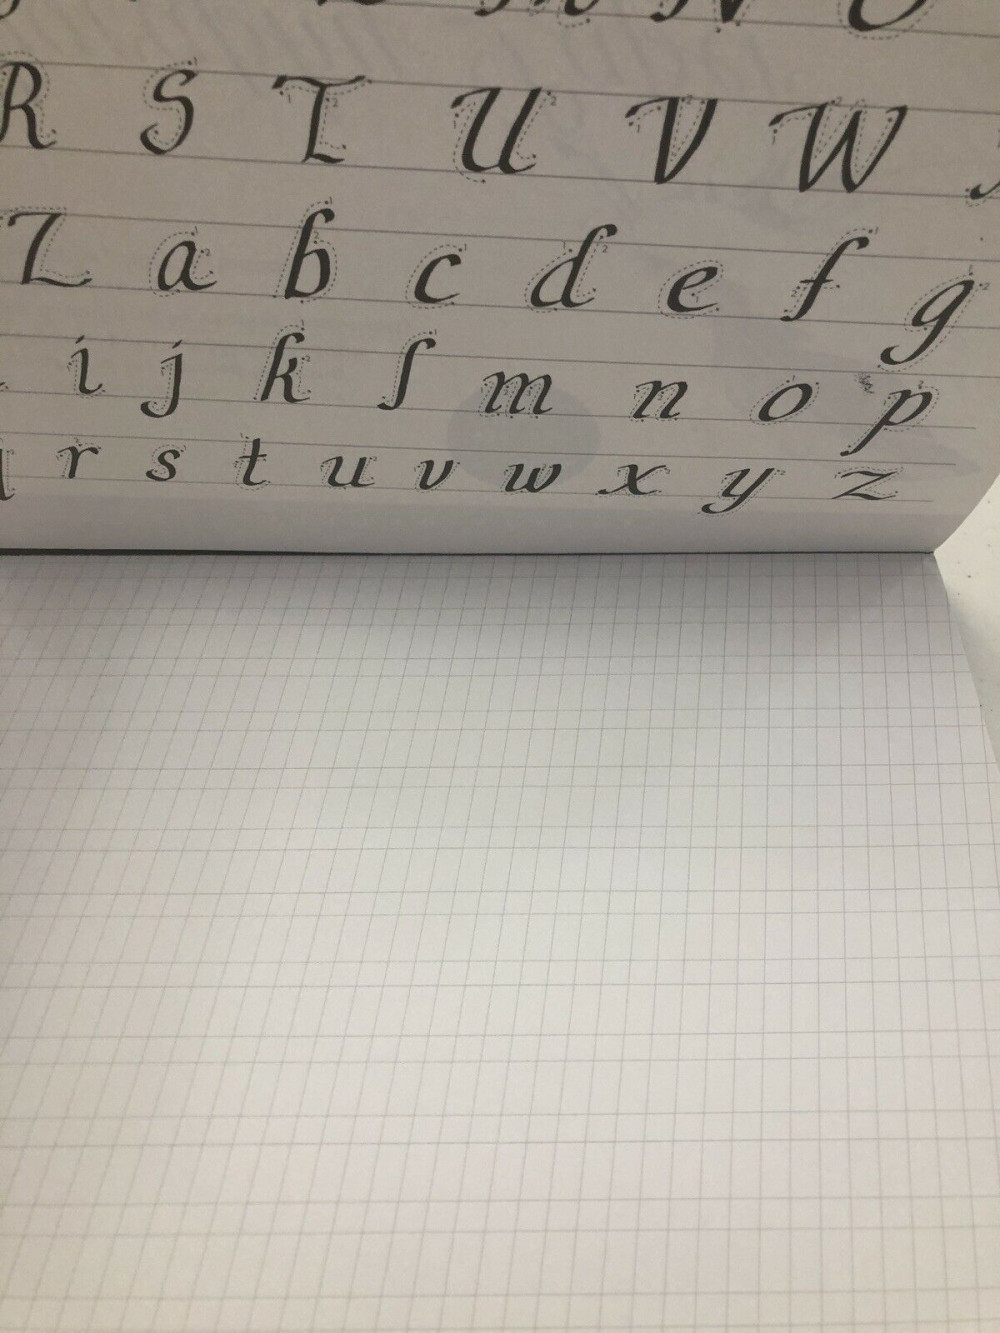 R S T U V W
Z a b c d e f g
i j k l m n o p
r s t u v w x y z